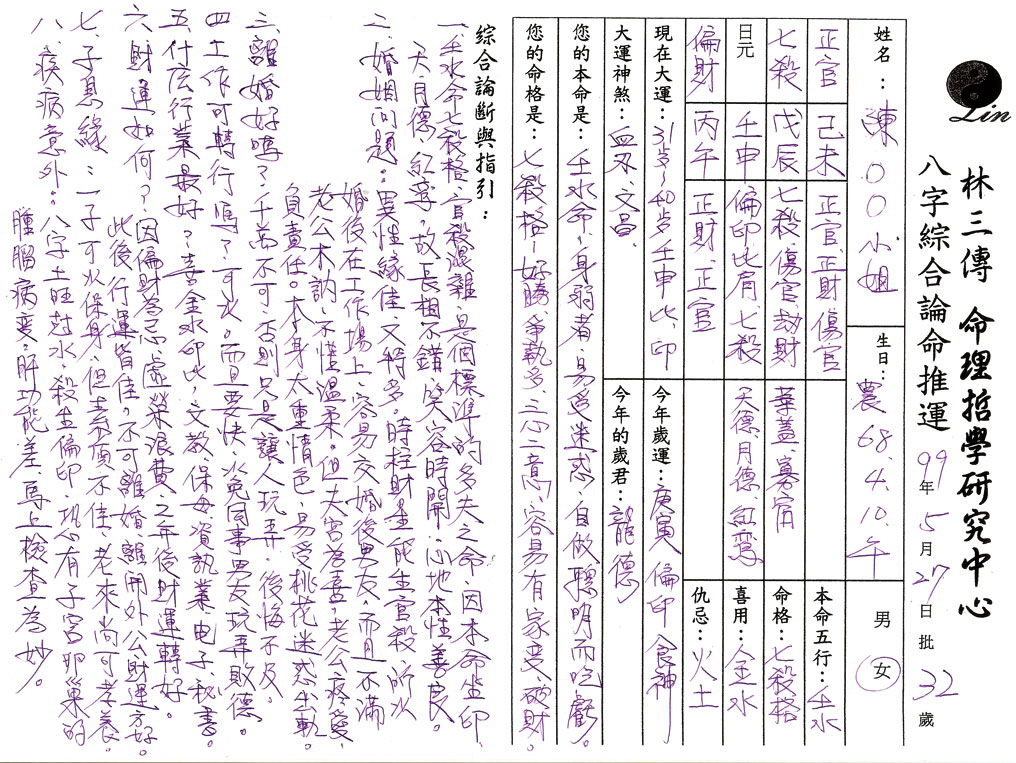 Lin
林三傳 命理哲學研究中心
八字綜合論命推運 99年5月27日批 32歲
姓名：陳00小姐 生日：農68.4.10.午 男 女
正官 己未 正官.正財傷官 本命五行：壬水
七殺 戊辰 七殺.傷官劫財 華蓋.寡宿 命格：七殺格
日元 壬申 偏印.比肩.七殺 天德.月德.紅鸞 喜用：金水
偏財 丙午 正財.正官 仇忌：火土
現在大運：31歲～40歲壬申比.印 今年歲運：庚寅偏印食神
大運神煞：血刃.文昌 今年的歲君：龍德
您的本命是：壬水命，身弱者，易受迷惑，自做聰明而吃虧。
您的命格是：七殺格～好勝，爭執多，三心二意，容易有家變，破財。
綜合論斷與指引：
一.壬水命七殺格，官殺混雜，是個標準的多夫之命，因本命坐印，
天.月德，紅鸞，故長相不錯，笑容時開，心地本性善良。
二.婚姻問題：異性緣佳又特多。時柱財星能生官殺，所以
婚後在工作場上，容易交婚後男友，而且不滿
老公木訥，不懂溫柔。但夫宮為喜，老公疼愛，
負責任。本身太重情色，易受桃花迷惑出軌。
三.離婚好嗎？千萬不可，否則只是讓人玩弄，後悔不及。
四.工作可轉行嗎？可以。而且要快，以免同事男友玩弄敗德。
五.什麼行業最好？喜金水印比，文教保母.資訊業电子.秘書。
六.財運如何？因偏財為忌，虛榮浪費，之年後財運轉好。
此後行運皆佳，不可離婚，離開外公財運方好。
七.子息緣：一子可以保身，但素質不佳，老來尚可孝養。
八.疾病意外。八字土旺尅水，殺生偏印，恐有子宮卵巢的
腫脹病变。肝功能差，馬上檢查為妙。